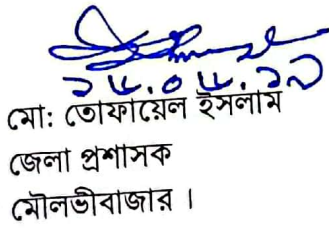 ১৮.০৮.১৯
মো: তোফায়েল ইসলাম
জেলা প্রশাসক
মৌলভীবাজার ।